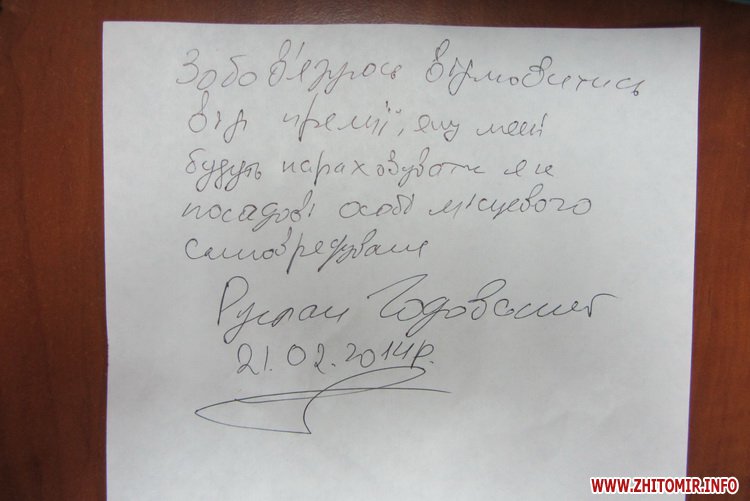 Зобов'язуюсь відмовитись
від премії, яку мені
будуть нараховувати як
посадові особі місцевого
самоврядування
Руслан Годований
21.02.2014р.
WWW.ZHITOMIR.INFO